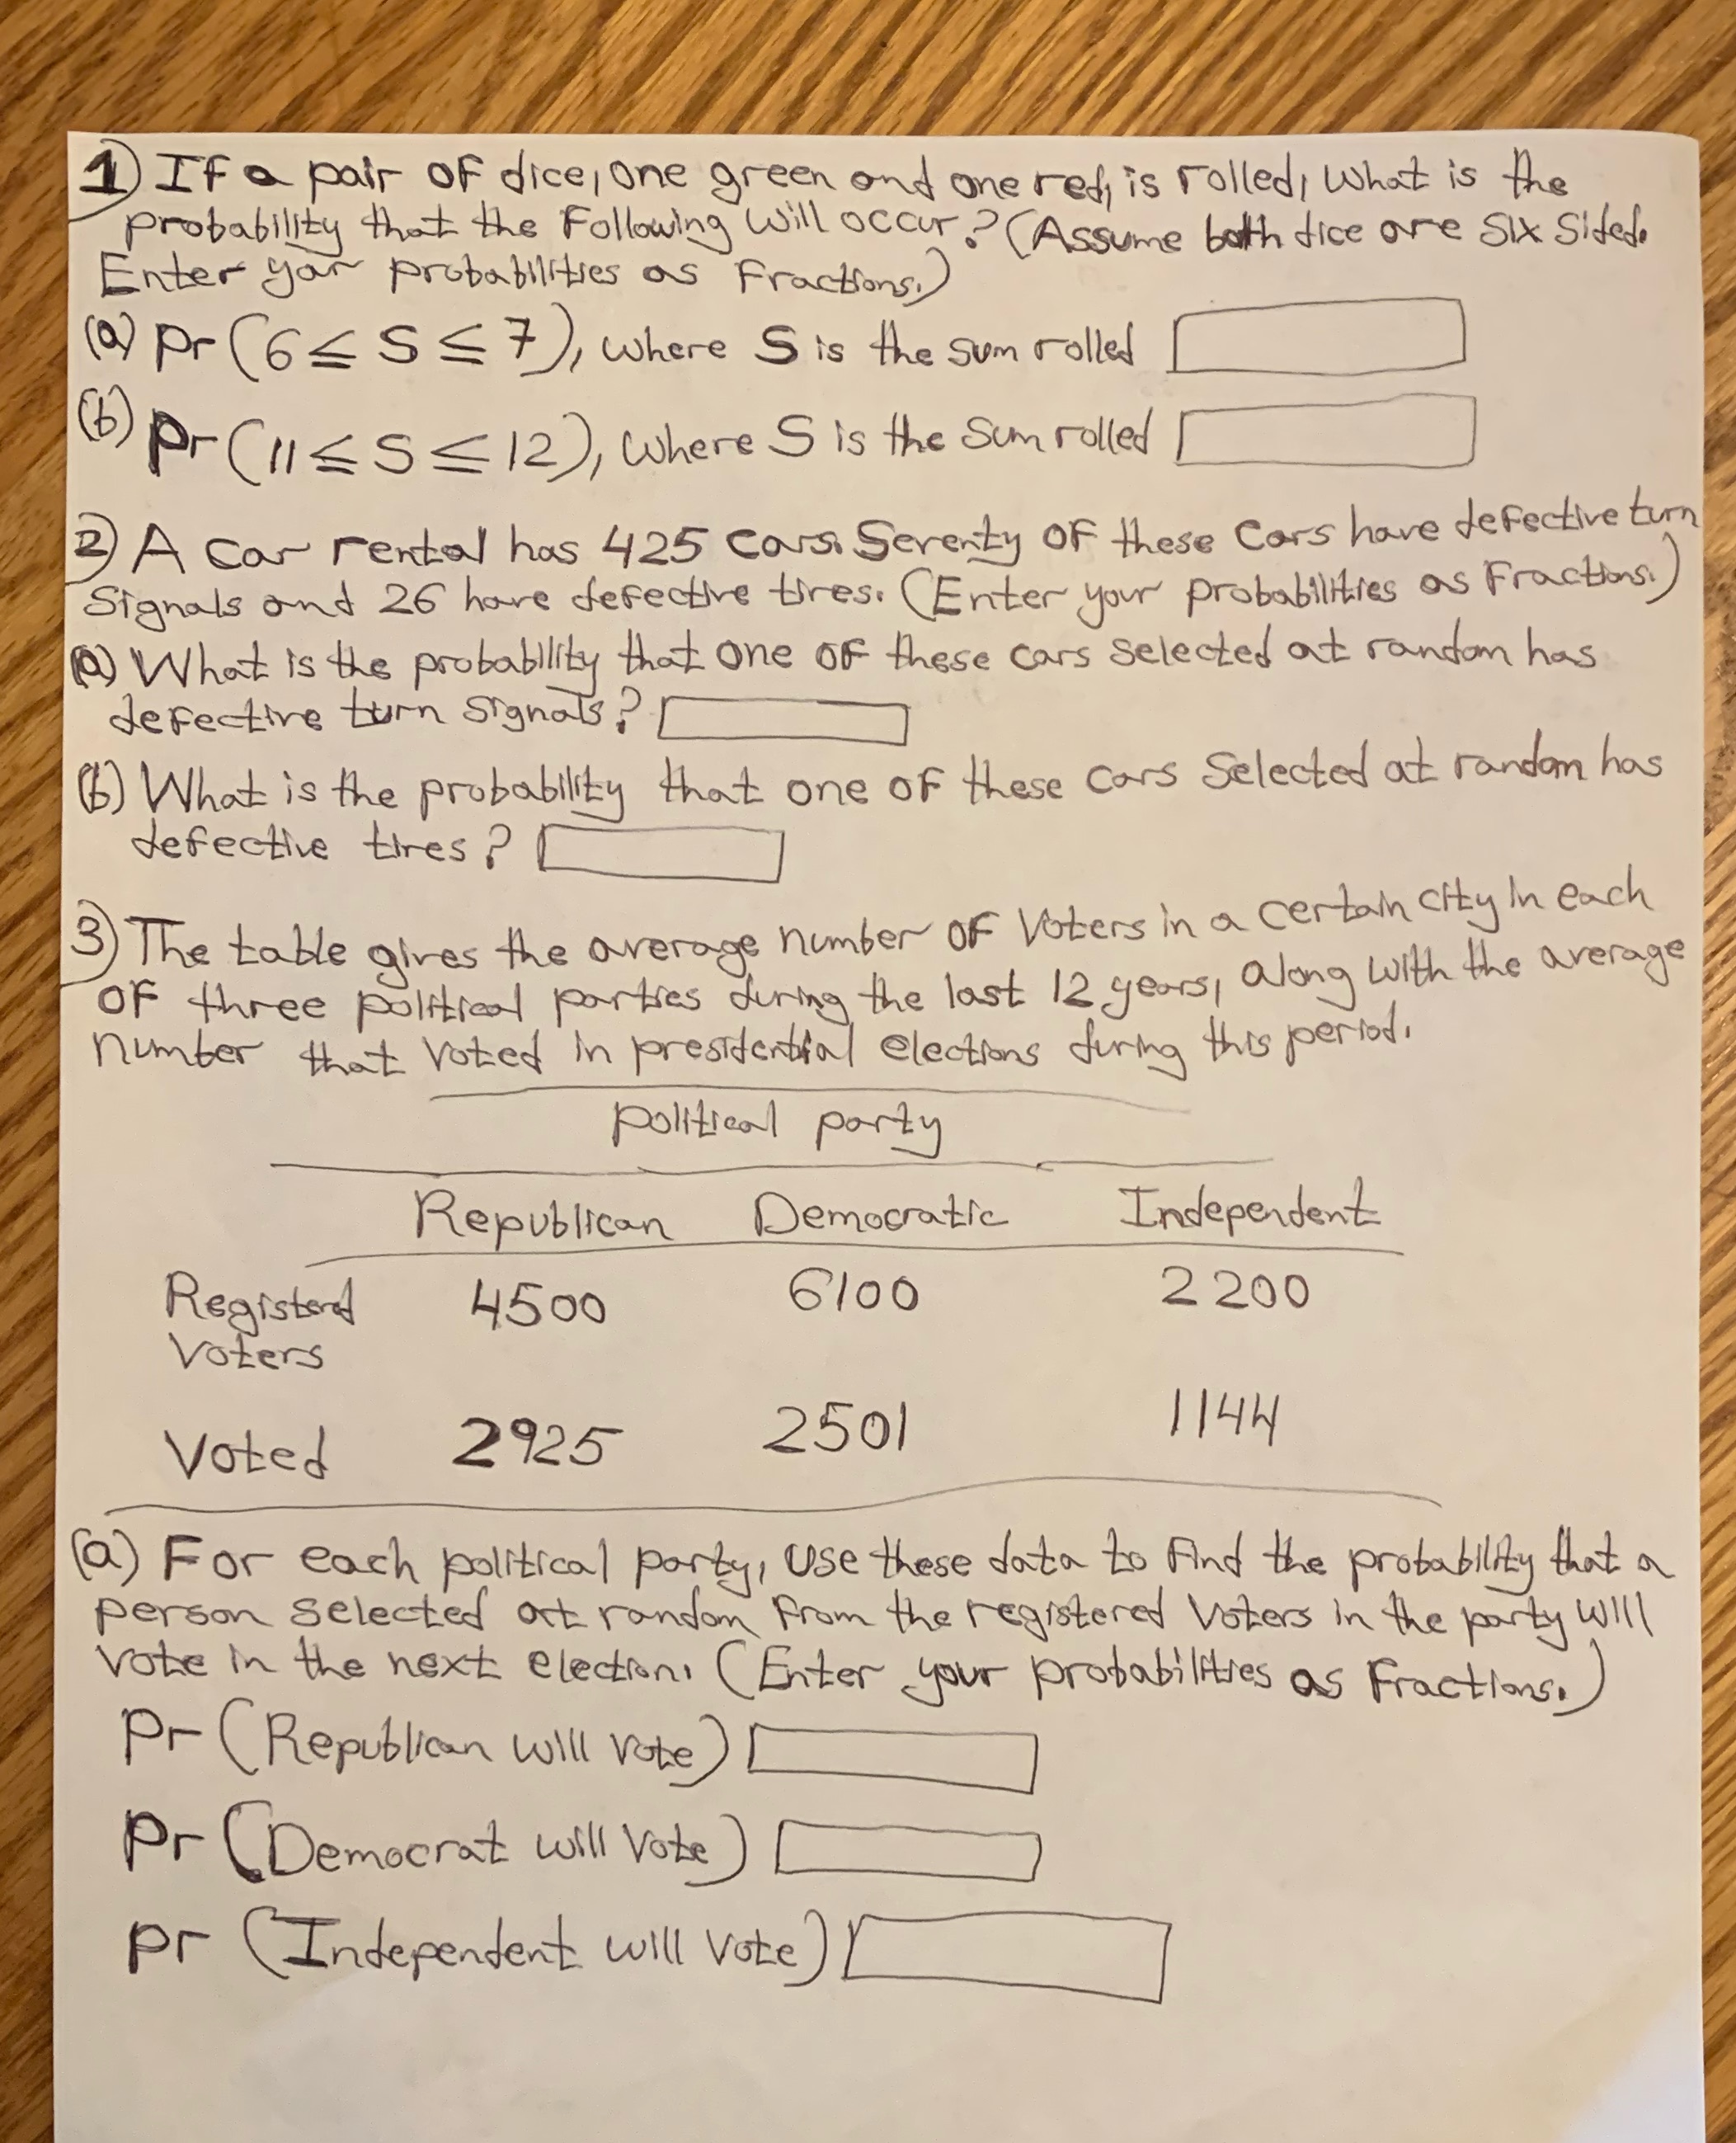 1) If a pair of dice, one green and one red, is rolled, what is the
probability that the following will occur? (Assume both dice are six sided.
Enter your probabilities as fractions.)
(a) Pr (6 ≤ S ≤ 7), where S is the sum rolled
(b) Pr (11 ≤ S ≤ 12), where S is the sum rolled
2) A car rental has 425 cars. Seventy of these cars have defective turn
signals and 26 have defective tires. (Enter your probabilities as fractions.)
(a) What is the probability that one of these cars selected at random has
defective turn signals?
(b) What is the probability that one of these cars selected at random has
defective tires?
3) The table gives the average number of voters in a certain city in each
of three political parties during the last 12 years, along with the average
number that voted in presidential elections during this period.
political party
Republican Democratic Independent
Registered 4500 6100 2200
Voters
Voted 2925 2501 1144
(a) For each political party, use these data to find the probability that a
person selected at random from the registered voters in the party will
vote in the next election. (Enter your probabilities as fractions.)
Pr (Republican will vote)
Pr (Democrat will vote)
Pr (Independent will vote)